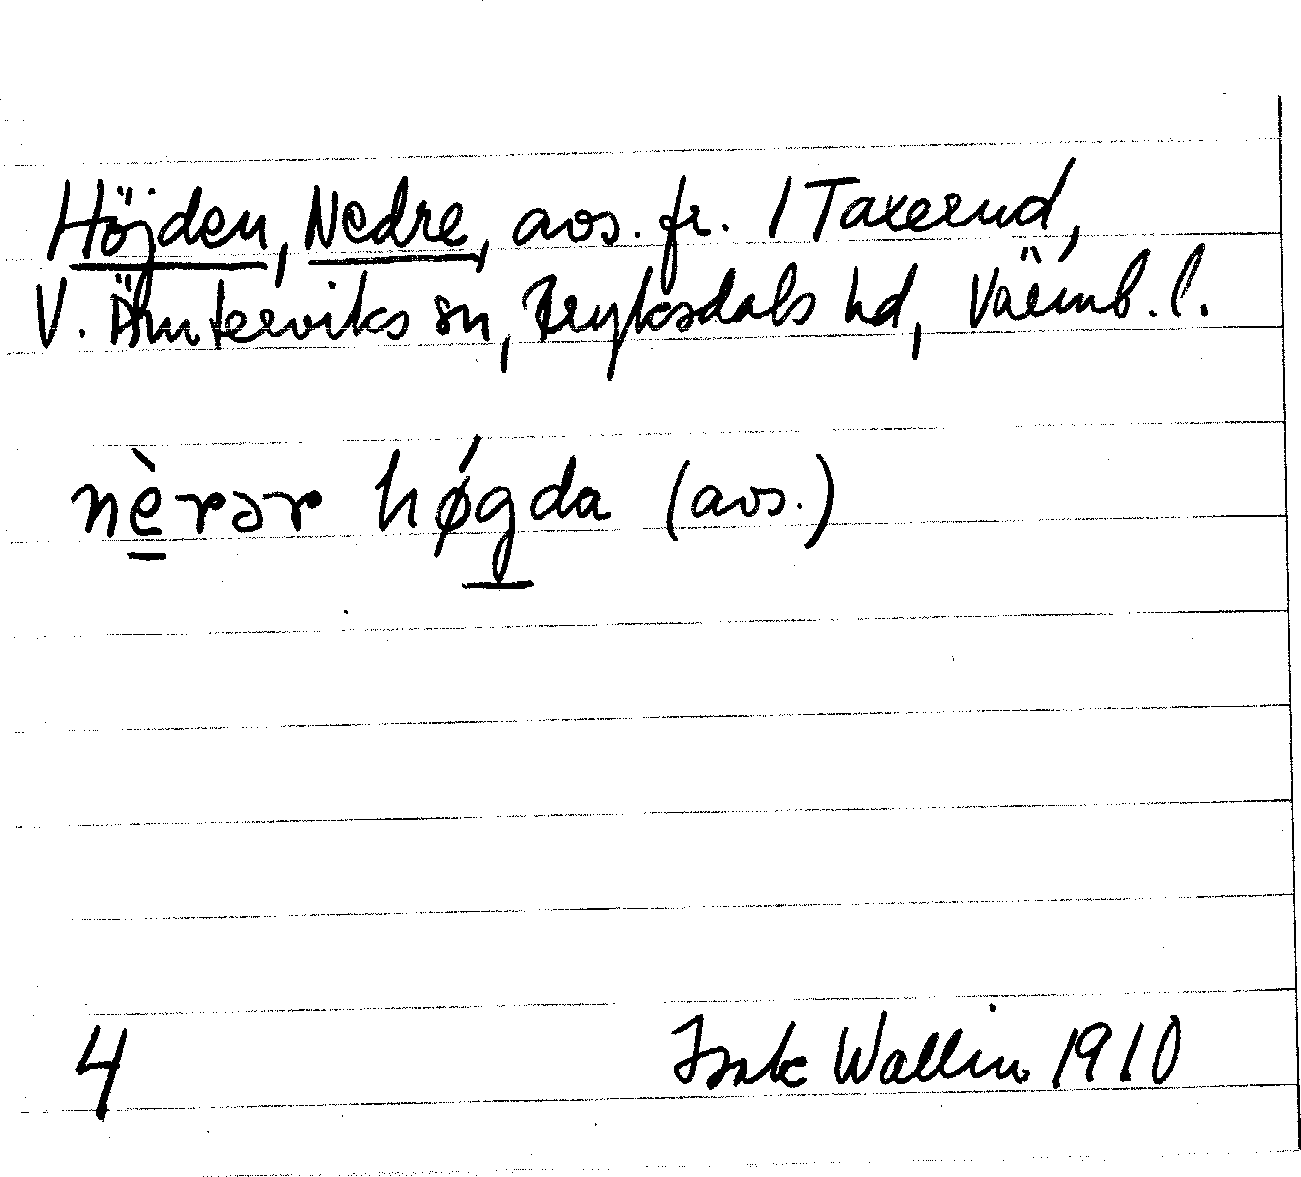 Höjden, Nedre, avs. fr. 1 Taxerud,
V. Ämterviks sn, Fryksdals hd, Värmb. l.
nèrər hǿgda (avs.)
4 Wallin 1910